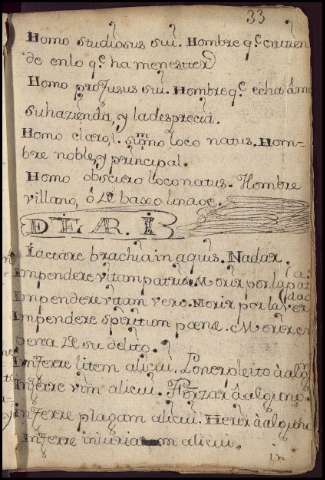 33
Homo studiosus sui. Hombre q.e entien
de en lo q.e ha menester
Homo profusus sui. Hombre q.e echa à mal
su hazienda, y la desprecia.
Homo clariss. loco natus. Hom-
bre noble, y principal.
Homo obscuro loco natus. Hombre
villano, ò de baxo linaje.
DE A. R. I
Iactare brachia in aquis. Nadar.
Impendere vitam patriæ. Morir por la pa
Impendere vitam vero. Morir por la ver
Impendere spiritum pœnæ. Morir en
pena de su delito.
Inferre litem alicui. Poner pleito à alg.
Inferre vim alicui. Forzar à alguno.
Inferre plagam alicui. Herir à alguno
Inferre iniuriam alicui.
in